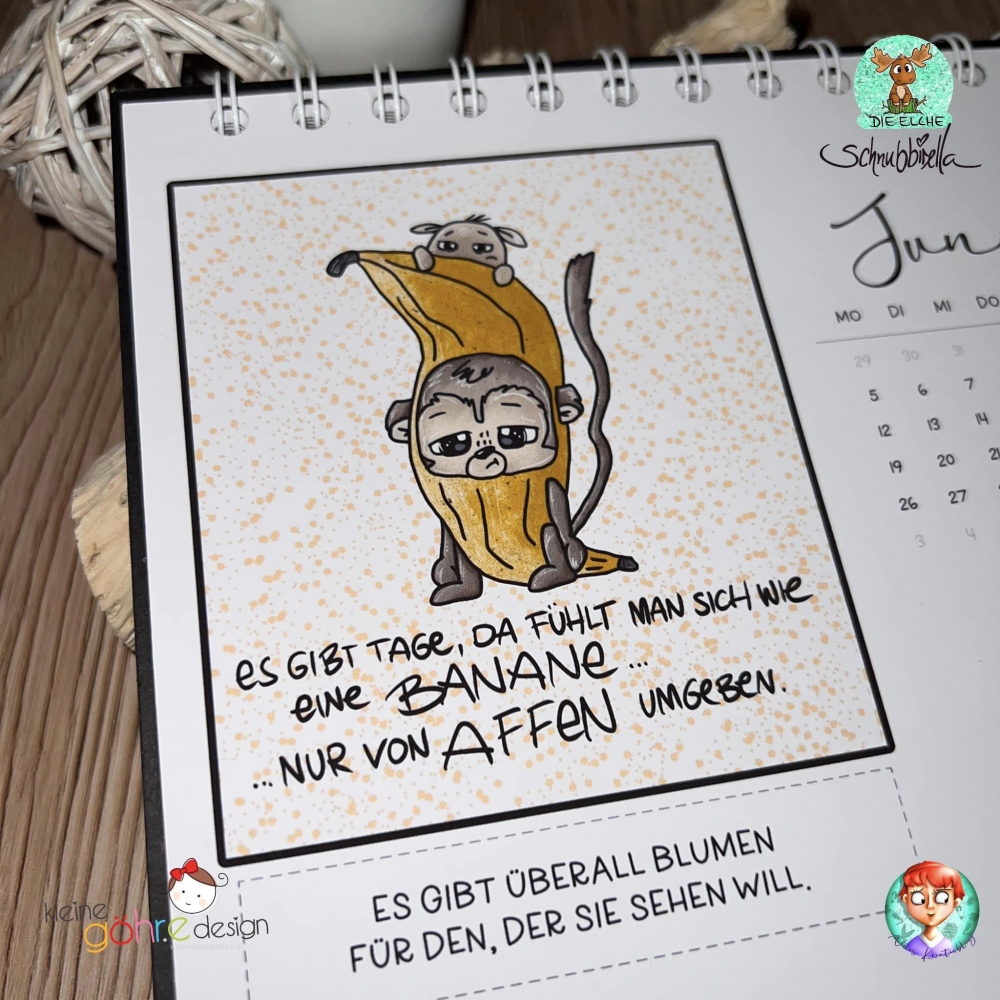 DIE ELCHE
Schnubbidella
Jun
MO DI MI DO
29 30 31
5 6 7
12 13 14
19 20 21
26 27
3 4
ES GIBT TAGE, DA FÜHLT MAN SICH WIE
EINE BANANE...
...NUR VON AFFEN UMGEBEN.
ES GIBT ÜBERALL BLUMEN
FÜR DEN, DER SIE SEHEN WILL.
kleine
göhr.e design